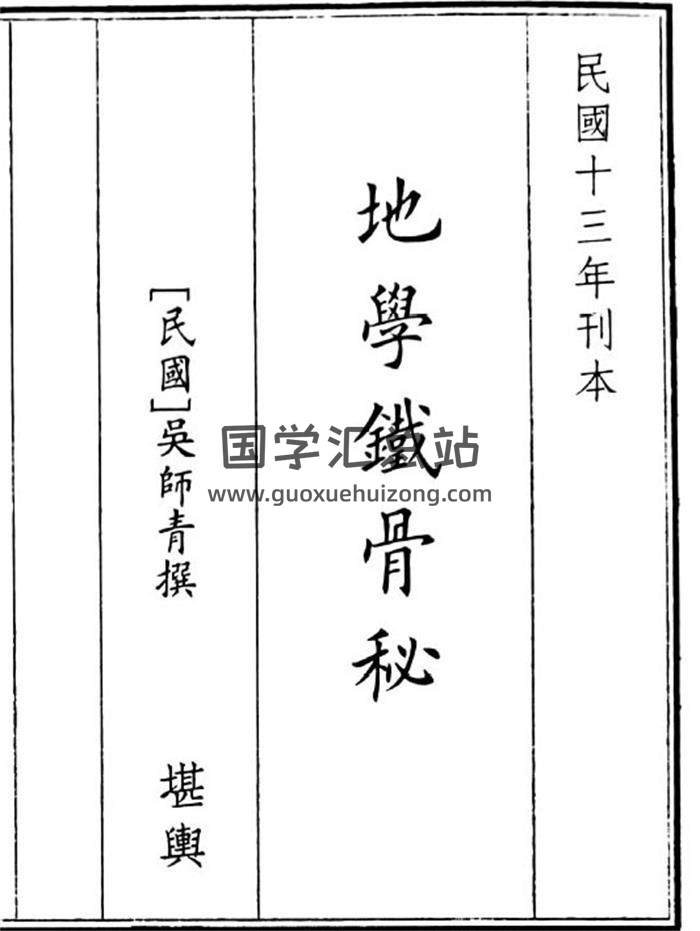 民國十三年刊本
地學鐵骨秘
[民國]吳師青撰
堪輿
国学汇总站
www.guoxuehuizong.com